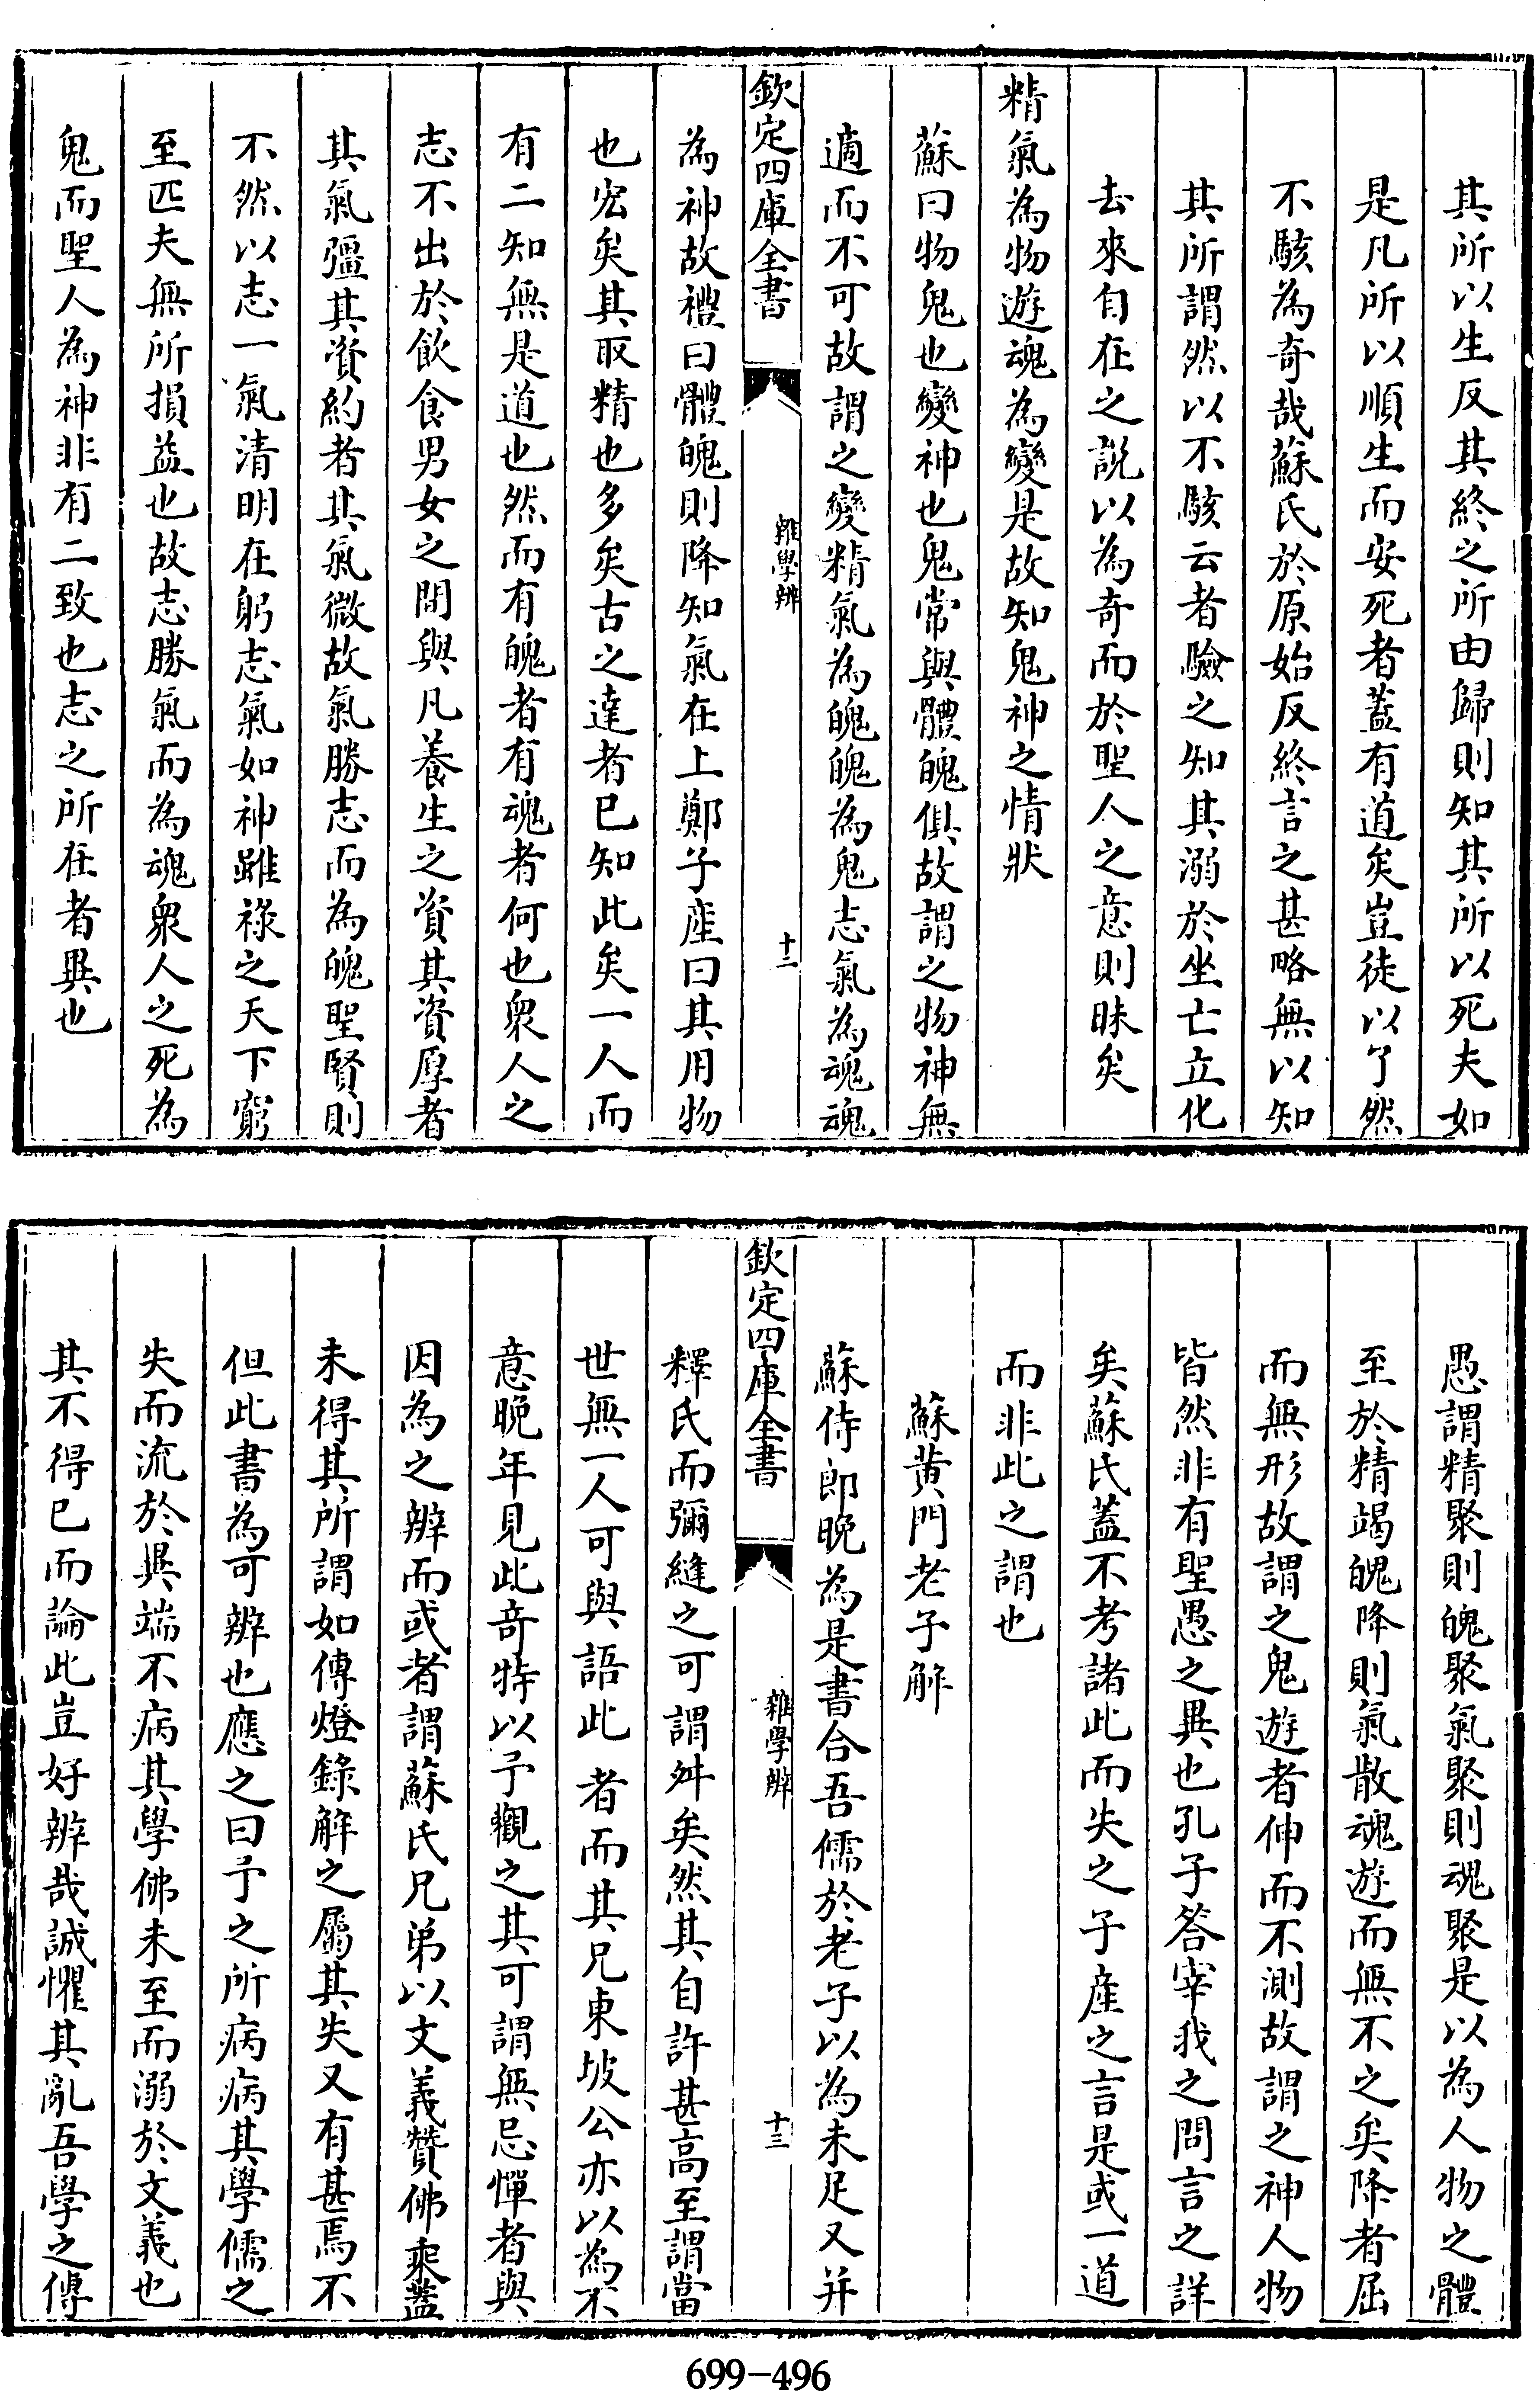 其所以生反其終之所由歸則知其所以死夫如
是凡所以順生而安死者蓋有道矣豈徒以了然
不駭為奇哉蘇氏於原始反終言之甚略無以知
其所謂然以不駭云者驗之知其溺於坐亡立化
去來自在之說以為奇而於聖人之意則昧矣
精氣為物遊魂為變是故知鬼神之情狀
蘇曰物鬼也變神也鬼常與體魄俱故謂之物神無
適而不可故謂之變精氣為魄魄為鬼志氣為魂魂
欽定四庫全書
雜學辨
十二
為神故禮曰體魄則降知氣在上鄭子産曰其用物
也宏矣其取精也多矣古之達者已知此矣一人而
有二知無是道也然而有魄者有魂者何也衆人之
志不出於飲食男女之間與凡養生之資其資厚者
其氣彊其資約者其氣微故氣勝志而為魄聖賢則
不然以志一氣清明在躬志氣如神雖祿之天下窮
至匹夫無所損益也故志勝氣而為魂衆人之死為
鬼而聖人為神非有二致也志之所在者異也
愚謂精聚則魄聚氣聚則魂聚是以為人物之體
至於精竭魄降則氣散魂遊而無不之矣降者屈
而無形故謂之鬼遊者伸而不測故謂之神人物
皆然非有聖愚之異也孔子答宰我之問言之詳
矣蘇氏蓋不考諸此而失之子産之言是或一道
而非此之謂也
蘇黃門老子解
蘇侍郎晚為是書合吾儒於老子以為未足又并
欽定四庫全書
雜學辨
十三
釋氏而彌縫之可謂舛矣然其自許甚高至謂當
世無一人可與語此者而其兄東坡公亦以為不
意晚年見此奇特以予觀之其可謂無忌憚者與
因為之辨而或者謂蘇氏兄弟以文義贊佛乘蓋
未得其所謂如傳燈錄解之屬其失又有甚焉不
但此書為可辨也應之曰予之所病病其學儒之
失而流於異端不病其學佛未至而溺於文義也
其不得已而論此豈好辨哉誠懼其亂吾學之傳
699-496